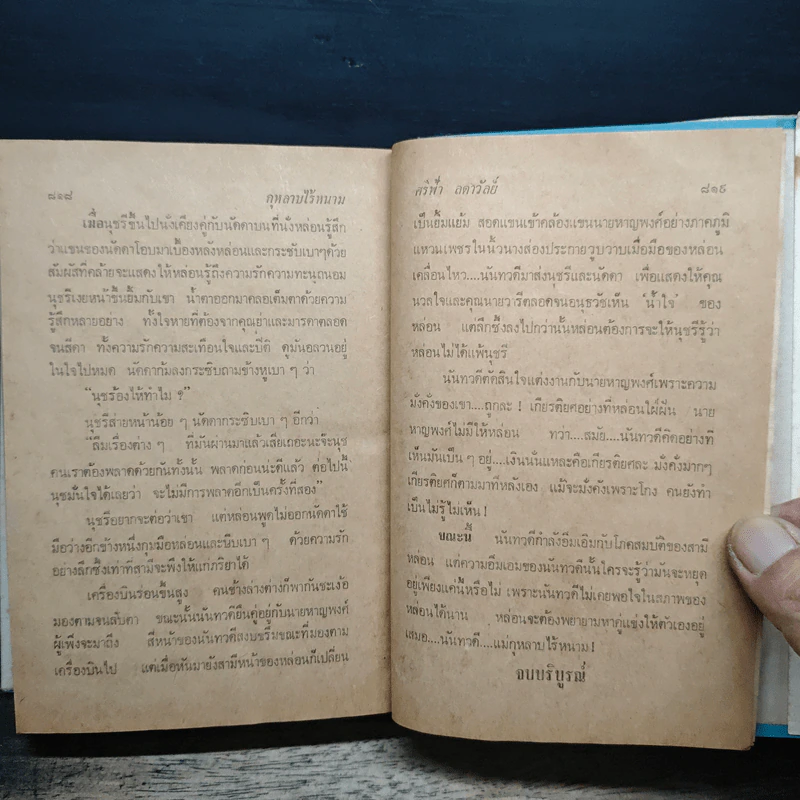 ๘๑๘ กุหลาบไร้หนาม
เมื่อนุชรีขึ้นไปนั่งเคียงคู่กับนัดดาบนที่นั่งหล่อนรู้สึก
ว่าแขนของนัดดาโอบมาเบื้องหลังหล่อนและกระชับเบาๆด้วย
สัมผัสที่คล้ายจะแสดงให้หล่อนรู้ถึงความรักความทะนุถนอม
นุชรีเงยหน้าขึ้นยิ้มกับเขา น้ำตาออกมาคลอเต็มตาด้วยความ
รู้สึกหลายอย่าง ทั้งใจหายที่ต้องจากคุณย่าและมารดาตลอด
จนสีดา ทั้งความรักความสะเทือนใจและปีติ ดูมันอลวนอยู่
ในใจไปหมด นัดดาก้มลงกระซิบถามข้างหูเบา ๆ ว่า
"นุชร้องไห้ทำไม ?"
นุชรีส่ายหน้าน้อย ๆ นัดดากระซิบเบา ๆ อีกว่า
"ลืมเรื่องต่าง ๆ ที่มันผ่านมาแล้วเสียเถอะนะจ๊ะนุช
คนเราต้องพลาดด้วยกันทั้งนั้น พลาดก่อนน่ะดีแล้ว ต่อไปนี้
นุชมั่นใจได้เลยว่า จะไม่มีการพลาดอีกเป็นครั้งที่สอง"
นุชรีอยากจะต่อว่าเขา แต่หล่อนพูดไม่ออกนัดดาใช้
มือว่างอีกข้างหนึ่งกุมมือหล่อนและบีบเบา ๆ ด้วยความรัก
อย่างลึกซึ้งเท่าที่สามีจะพึงให้แก่ภริยาได้
เครื่องบินร่อนขึ้นสูง คนข้างล่างต่างก็พากันชะเง้อ
มองตามจนลับตา ขณะนั้นนันทวดียืนคู่อยู่กับนายหาญพงศ์
ผู้เพิ่งจะมาถึง สีหน้าของนันทวดีสงบขรึมขณะที่มองตาม
เครื่องบินไป แต่เมื่อหันมายังสามีหน้าของหล่อนก็เปลี่ยน
ศรีฟ้า ลดาวัลย์ ๘๑๙
เป็นยิ้มแย้ม สอดแขนเข้าคล้องแขนนายหาญพงศ์อย่างภาคภูมิ
แหวนเพชรในนิ้วนางส่องประกายวูบวาบเมื่อมือของหล่อน
เคลื่อนไหว....นันทวดีมาส่งนุชรีและนัดดา เพื่อแสดงให้คุณ
นวลใจและคุณนายวารีตลอดจนอนุธวัชเห็น 'น้ำใจ' ของ
หล่อน แต่ลึกซึ้งลงไปกว่านั้นหล่อนต้องการจะให้นุชรีรู้ว่า
หล่อนไม่ได้แพ้นุชรี
นันทวดีตัดสินใจแต่งงานกับนายหาญพงศ์เพราะความ
มั่งคั่งของเขา....ถูกละ ! เกียรติยศอย่างที่หล่อนใฝ่ฝัน นาย
หาญพงศ์ไม่มีให้หล่อน ทว่า....สมัย....นันทวดีคิดอย่างที่
เห็นมันเป็น ๆ อยู่....เงินนั่นแหละคือเกียรติยศละ มั่งคั่งมากๆ
เกียรติยศก็ตามมาทีหลังเอง แม้จะมั่งคั่งเพราะโกง คนยังทำ
เป็นไม่รู้ไม่เห็น !
ขณะนี้ นันทวดีกำลังอิ่มเอิบกับโภคสมบัติของสามี
หล่อน แต่ความอิ่มเอมของนันทวดีนั้นใครจะรู้ว่ามันจะหยุด
อยู่เพียงแค่นี้หรือไม่ เพราะนันทวดีไม่เคยพอใจในสภาพของ
หล่อนได้นาน หล่อนจะต้องพยายามหาคู่แข่งให้ตัวเองอยู่
เสมอ....นันทวดี....แม่กุหลาบไร้หนาม !
จบบริบูรณ์